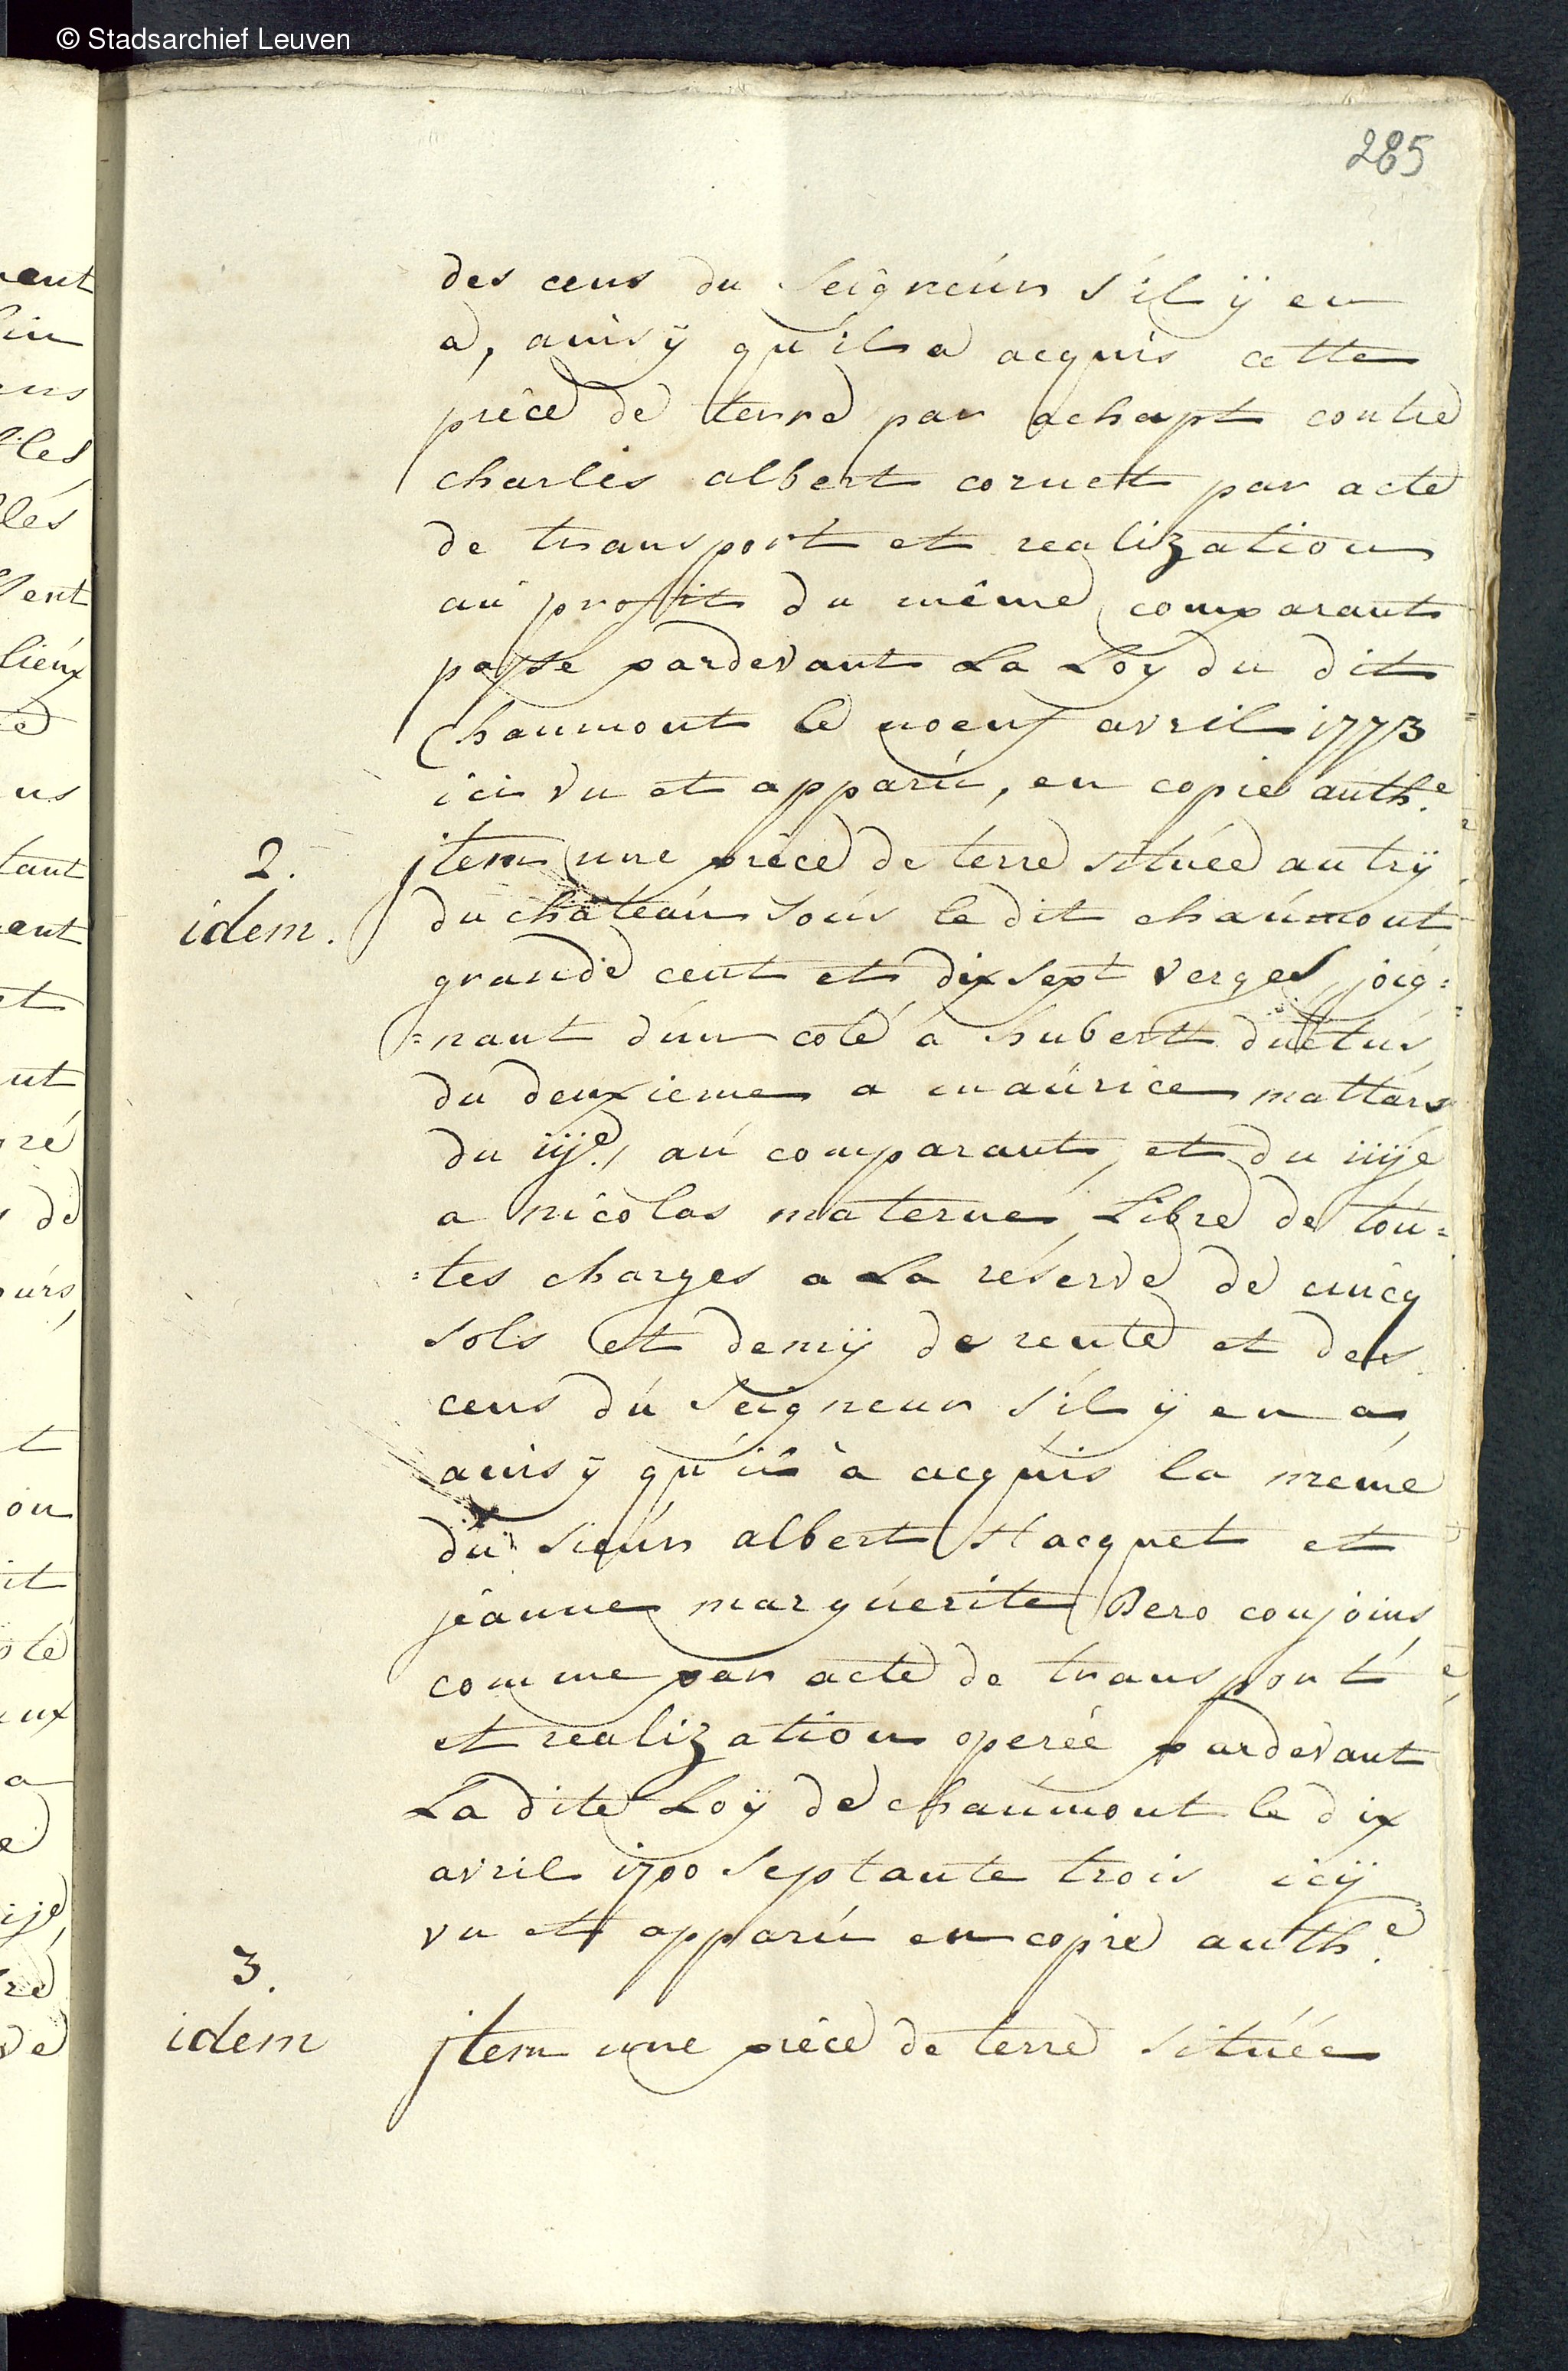 © Stadsarchief Leuven
285
des cens du Seigneur s'il ÿ en
a, ainsÿ qu'il a acquis cette
piéce de terre par achapt contre
charles albert cornett par acte
de transport et realization
au profit du même comparant
passe pardevant La Loy du dit
Chaumont le noeuf avril 1773
ici vu et apparu, en copie auth.e
2.
idem.
jtem une piéce de terre située au trÿ
du chateau sous le dit chaumont
grande cent et dix sept verges joig=
=nant d'un coté a hubert ductus
du deuxieme a maurice mattars
du iije, au comparant, et du iiije
a nicolas materne, Libre de tou=
=tes charges a La réserve de cincq
sols et demÿ de rente et des
cens du Seigneur s'il ÿ en a,
ainsÿ qu'il à acquis la méme
du sieur albert Hacquet et
jéanne marguerite Bero conjoins,
comme par acte de transport
et realization operée pardevant
La dite Loÿ de chaumont le dix
avril 1700 septante trois icÿ
vu et apparu en copie auth.e
3.
idem
jtem une piéce de terre située